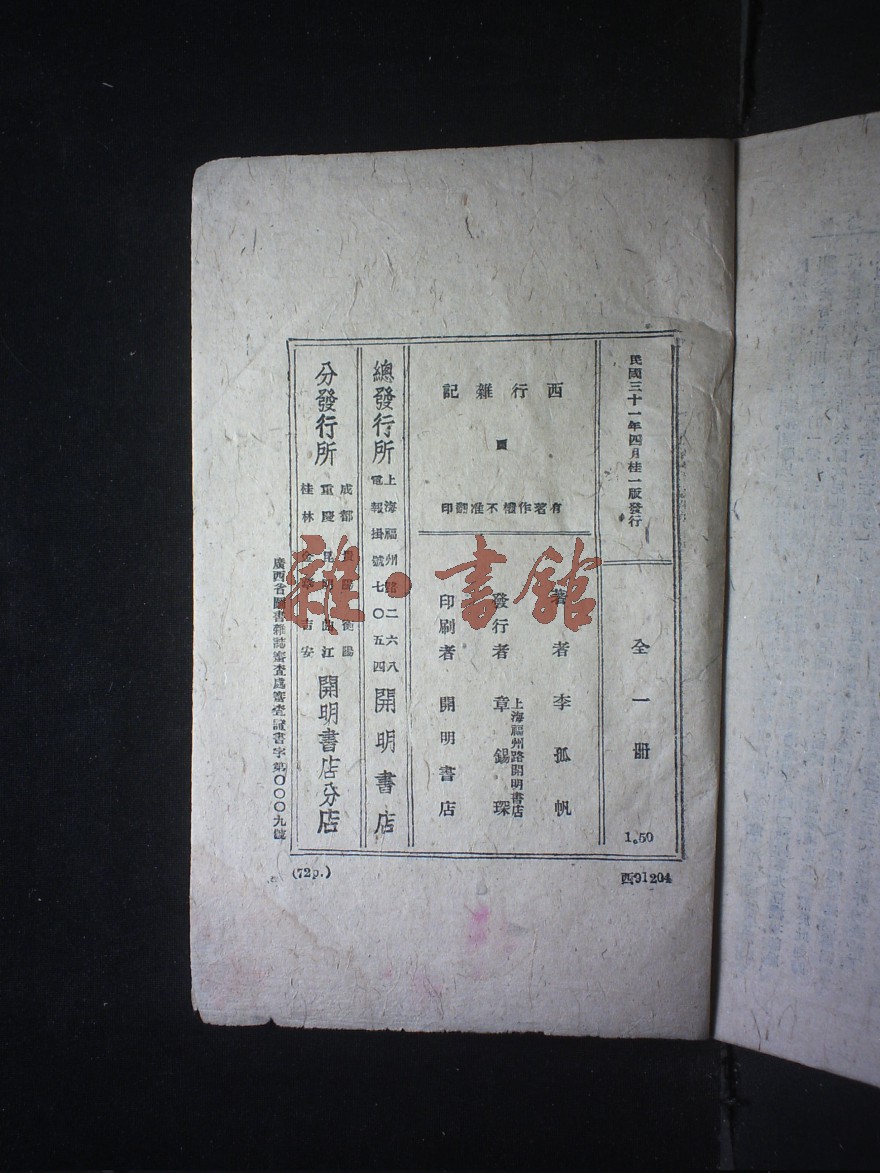 民國三十一年四月桂一版發行
全一冊
1.50
西行雜記
有著作權不准翻印
著者 李孤帆
發行者 章錫琛
上海福州路開明書店
印刷者 開明書店
總發行所
上海福州路二六八
電報掛號七〇五四
開明書店
分發行所
成都 貴陽 衡陽
重慶 昆明 曲江
桂林 金華 吉安
開明書店分店
廣西省圖書雜誌審查處審查證書字第〇〇〇九號
(72p.)
西91204
雜·書館